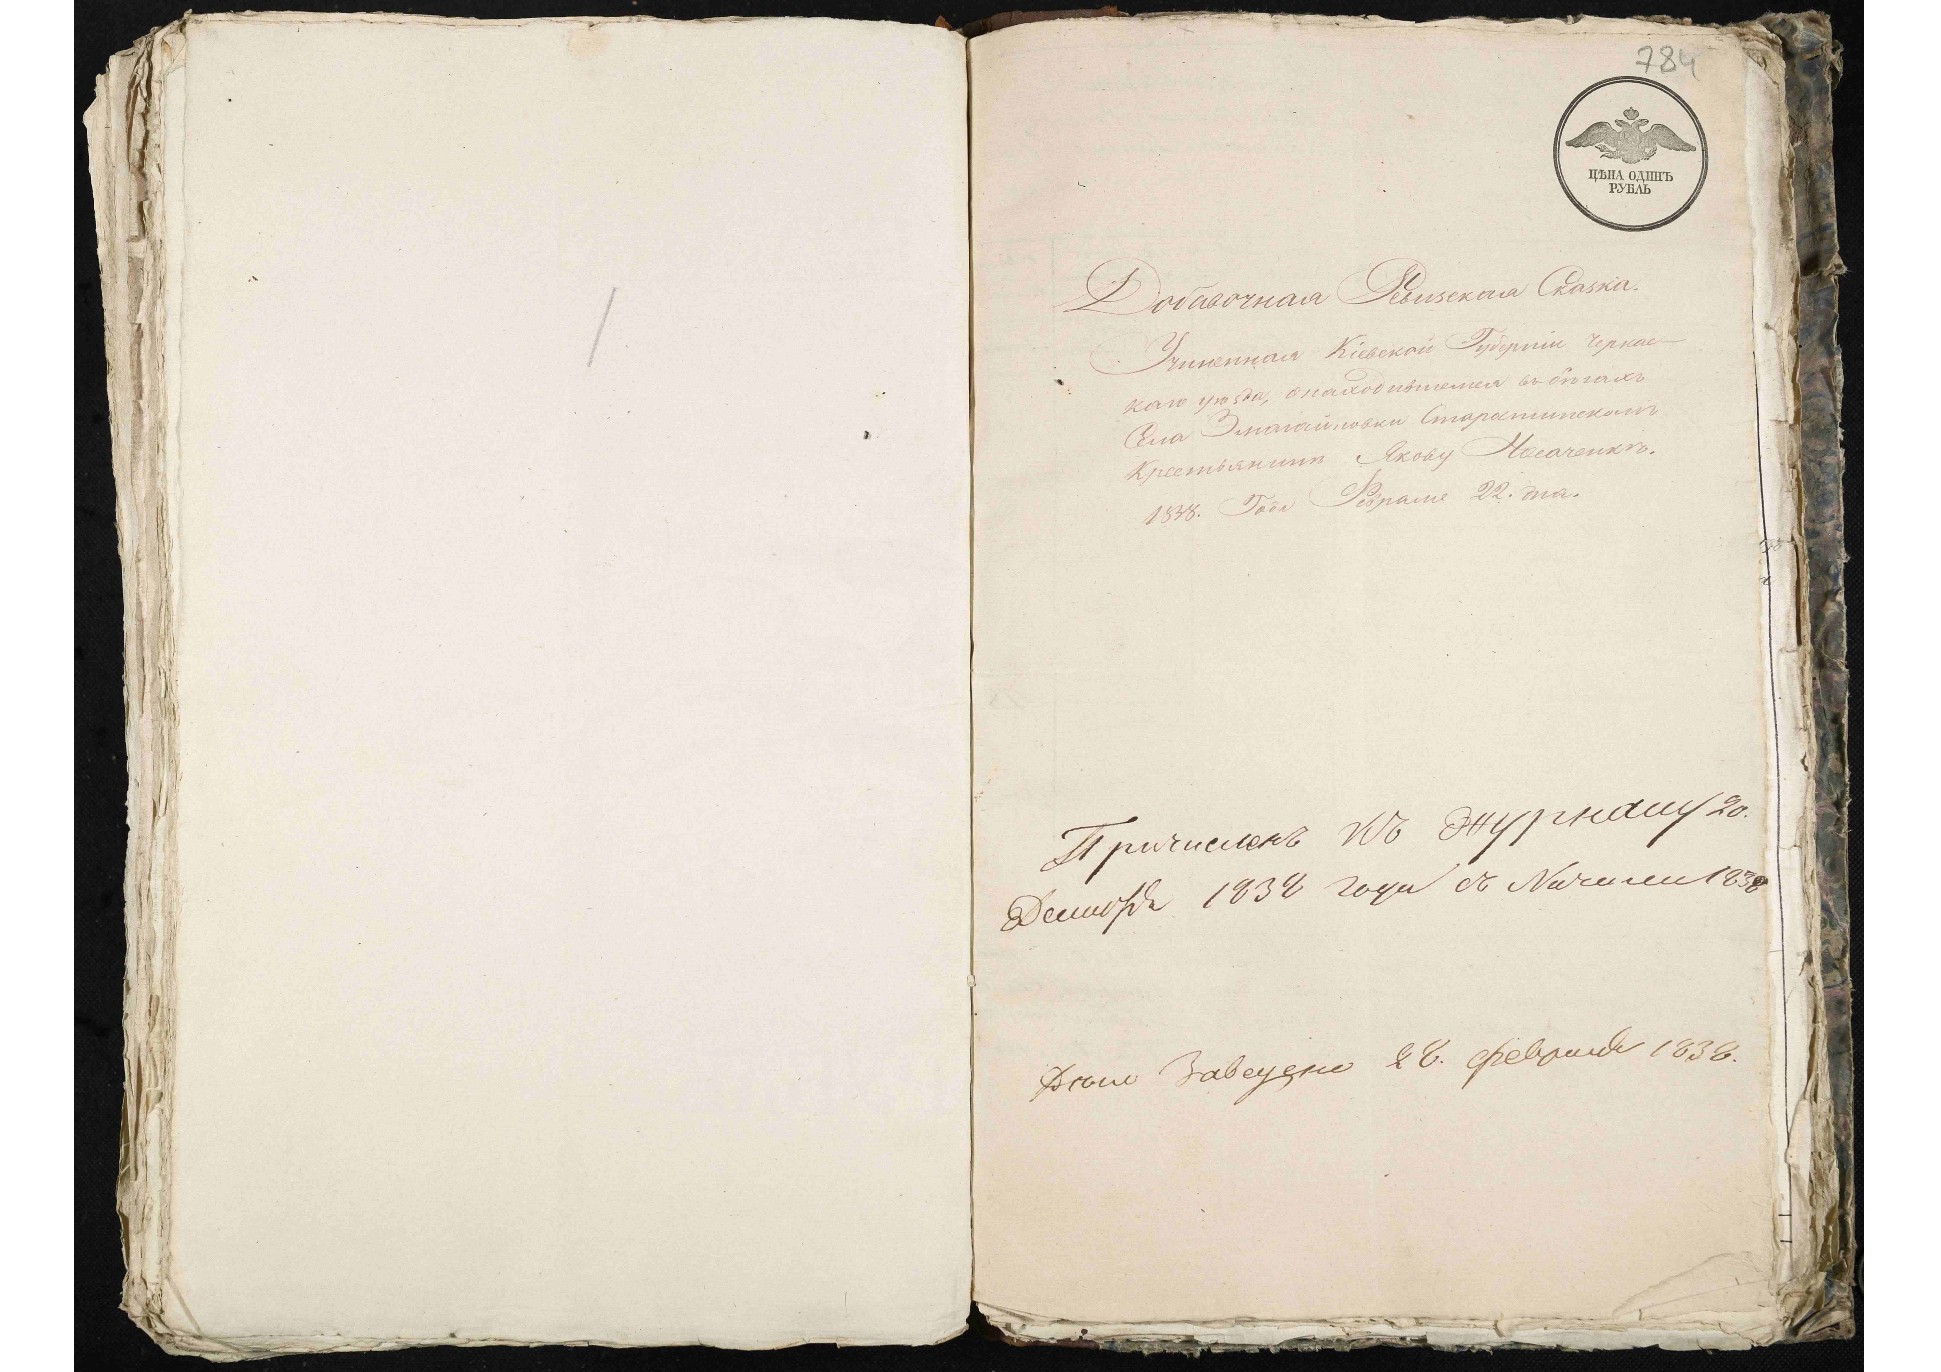 784
ЦѢНА ОДИНЪ
РУБЛЬ
Добавочная Ревизская Сказка.
Учиненная Кіевской Губерніи Черкас-
каго уѣзда, о находившемся въ бѣгахъ
Села Змагайловки Старостинскомъ
Крестьянинѣ Якову Носаченкѣ.
1838. Года Февраля 22. дня.
Причисленъ къ Журналу 20.
Декабря 1838 года съ Начала 1838
Дѣло Заведено 28. Февраля 1838.